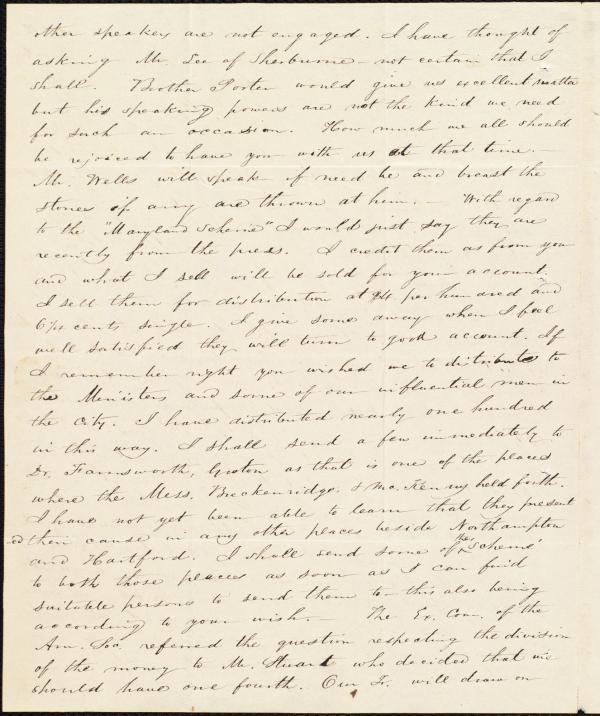 other speakers are not engaged. I have thought of
asking Mr. Lee of Sherburne - not certain that I
shall. Brother Porter would give us excellent matter
but his speaking powers are not the kind we need
for such an occasion. How much we all should
be rejoiced to have you with us at that time. -
Mr. Wells will speak if need be and breast the
stones if any are thrown at him. - With regard
to the "Maryland Scheme" I would just say they are
recently from the press. I credit them as from you
and what I sell will be sold for your account.
I sell them for distribution at $4. per hundred and
6¼ cents single. I give some away when I feel
well satisfied they will turn to good account. If
I remember right you wished me to distribute to
the Ministers and some of our influential men in
the city. I have distributed nearly one hundred
in this way. I shall send a few immediately to
Dr. Farnsworth, Groton as that is one of the places
where the Mess. Breckenridge & Mc. Kenny held forth.
I have not yet been able to learn that they presented
their cause in any other places beside Northampton
and Hartford. I shall send some of the "Scheme"
to both those places as soon as I can find
suitable persons to send them to - this also being
according to your wish. - The Ex. Com. of the
Am. Soc. referred the question respecting the division
of the money to Mr. Stuart who decided that we
should have one fourth. Our Tr. will draw on